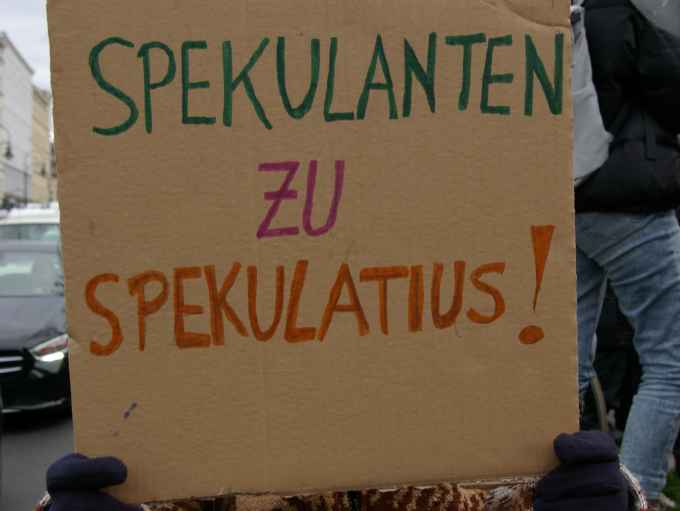 SPEKULANTEN
ZU
SPEKULATIUS!